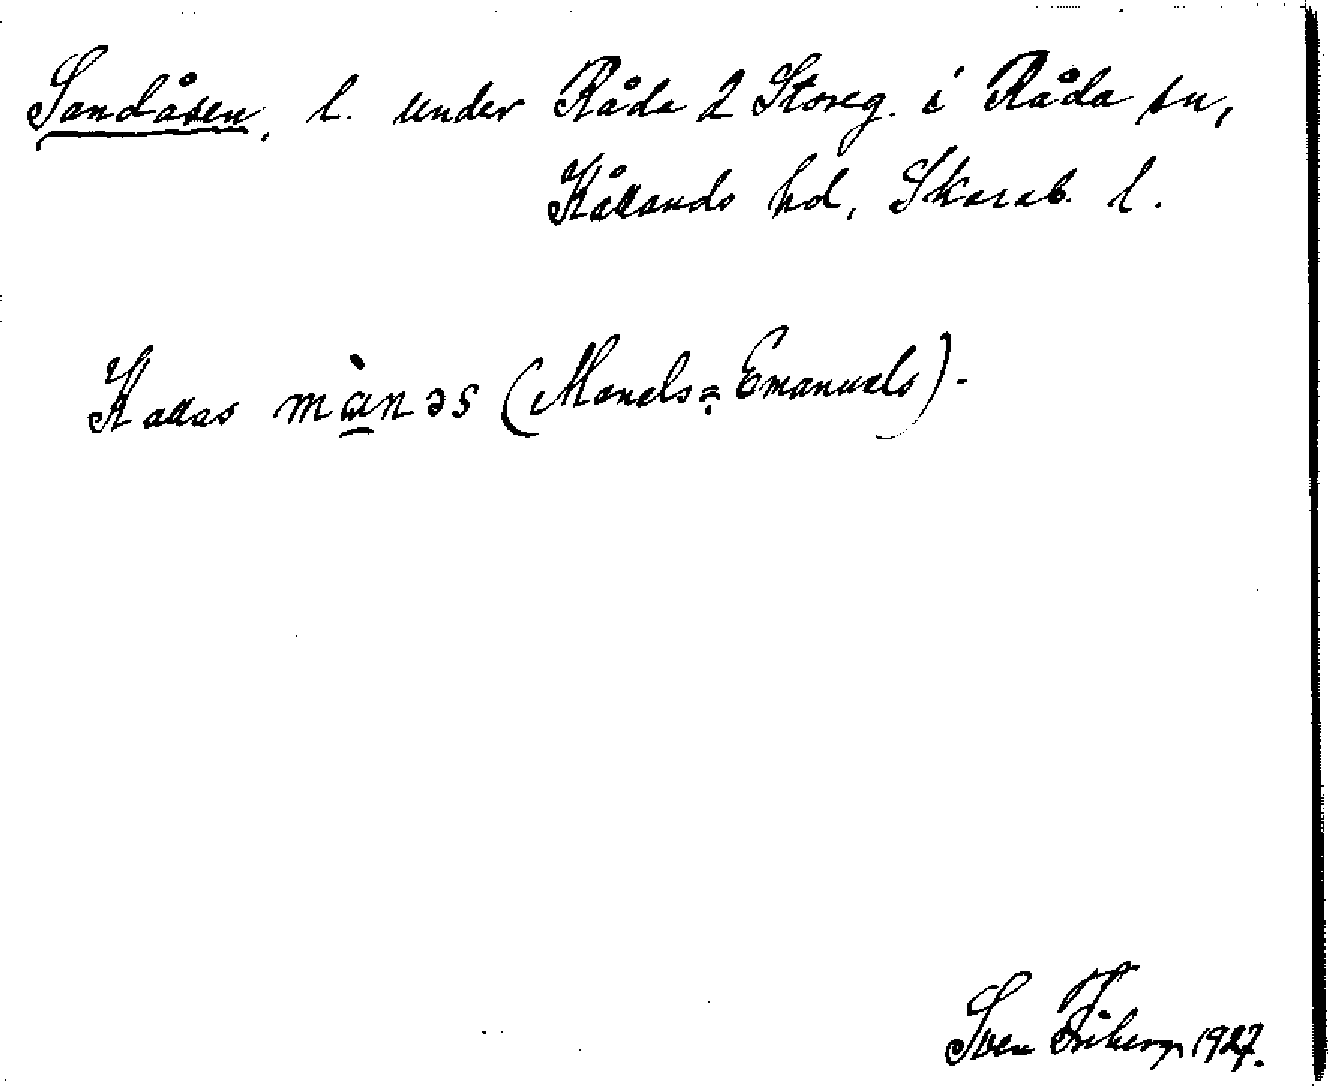 Sandåsen, l. under Råda 2 Storeg. i Råda sn,
Kållands hd, Skarab. l.
Kallas mànəs (Manels = Emanuels).
Sven Friberg 1927.